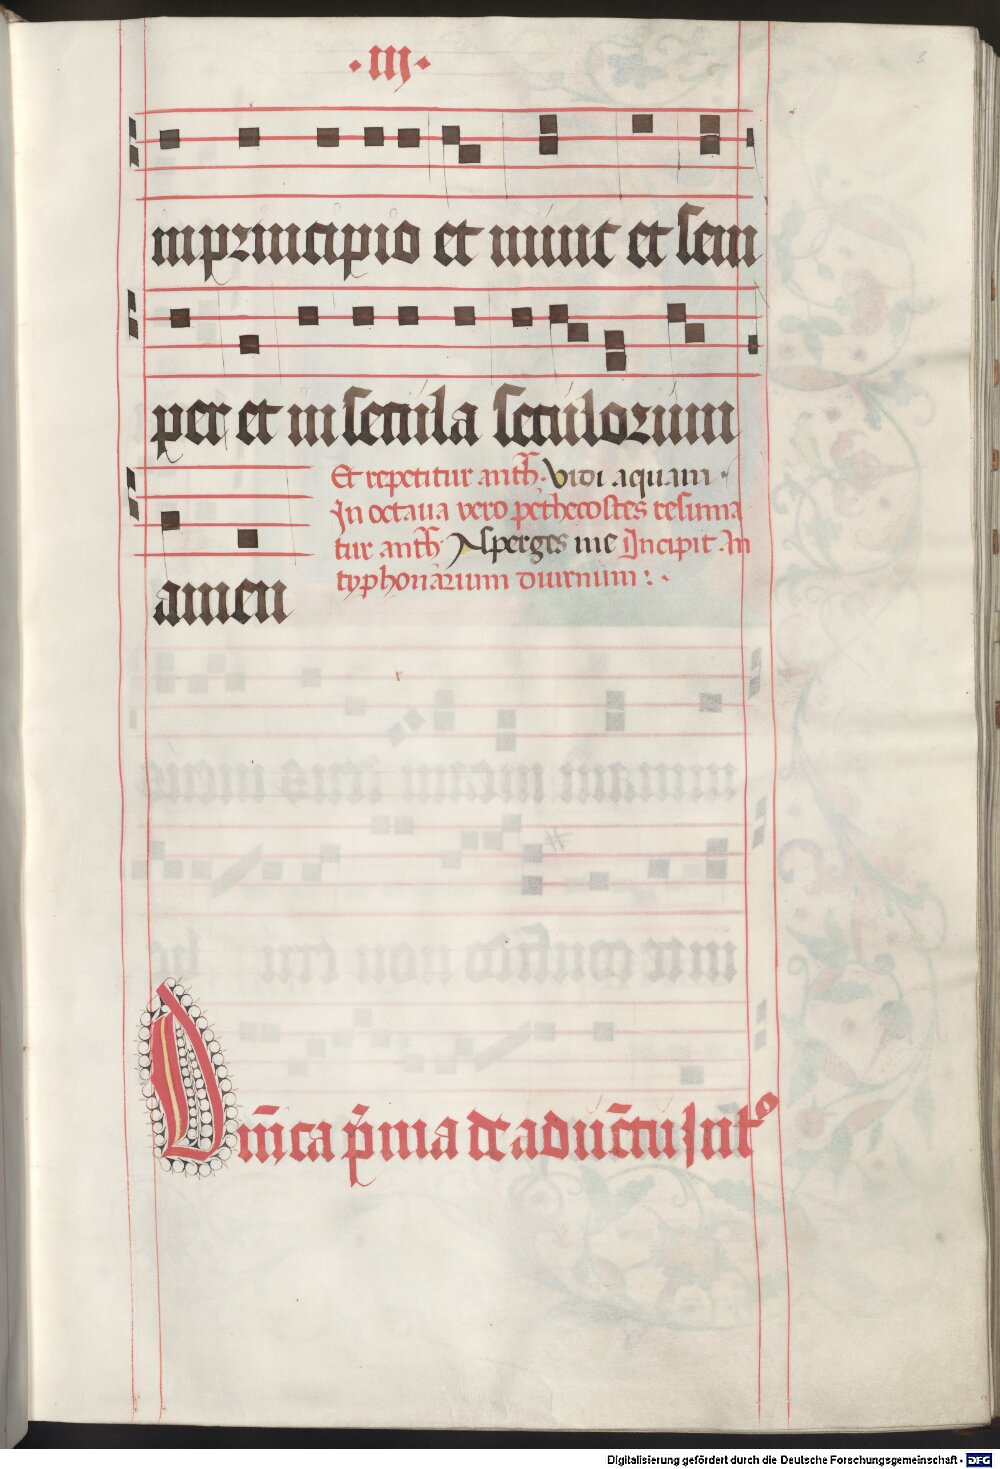 ·III·
3
in principio et nunc et sem
per et in secula seculorum
Et repetitur anth̄. Vidi aquam ·
In octaua vero pethecostes resuma
tur anth̄ Asperges me Incipit An
typhonarium diurnum : .
amen
Dn̄ica p̄ma de aduētu
Digitalisierung gefördert durch die Deutsche Forschungsgemeinschaft - DFG